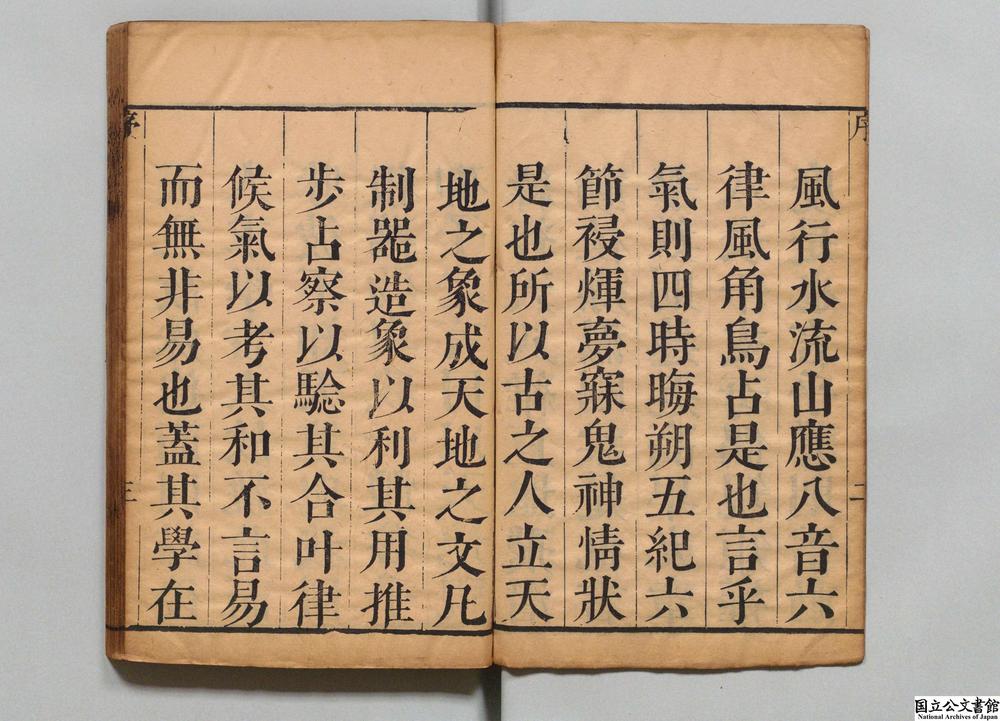 序
二
風行水流山應八音六
律風角鳥占是也言乎
氣則四時晦朔五紀六
節祲煇夢寐鬼神情狀
是也所以古之人立天
地之象成天地之文凡
制器造象以利其用推
步占察以騐其合叶律
候氣以考其和不言易
而無非易也蓋其學在
序
三
国立公文書館
National Archives of Japan